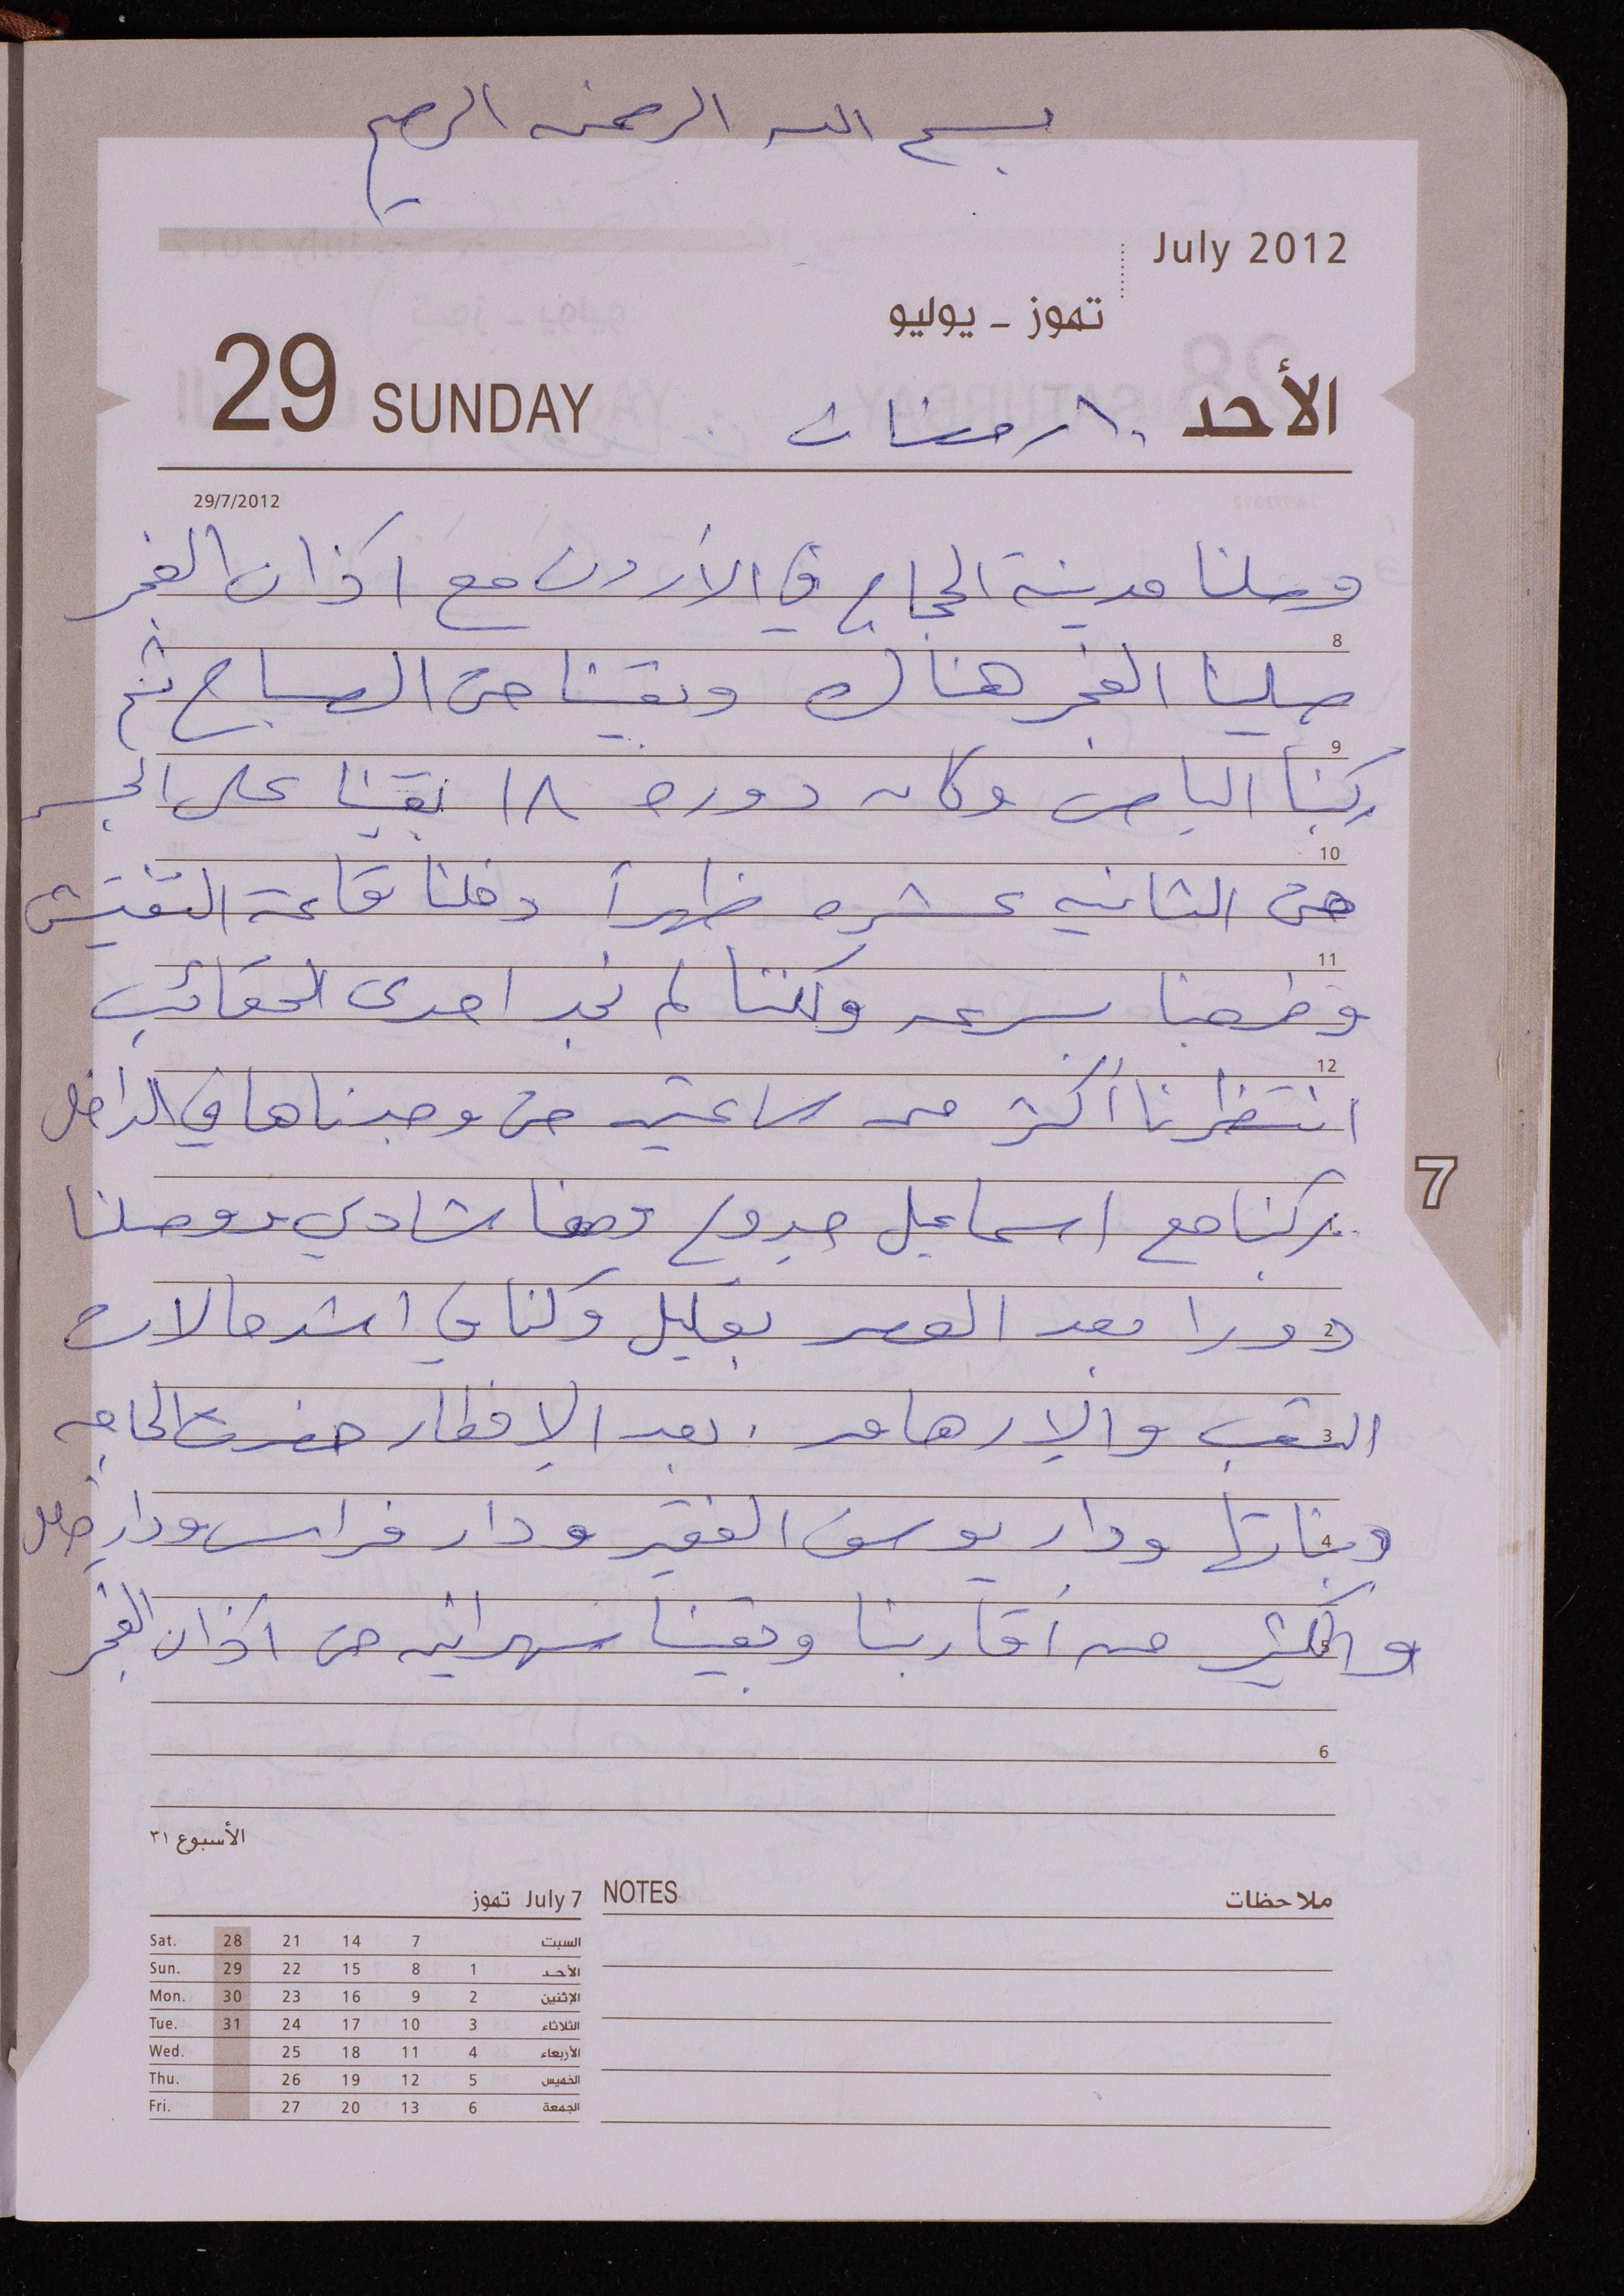 بسم الله الرحمن الرحيم
July 2012
تموز - يوليو
29 SUNDAY
الأحد ١٠ رمضان
29/7/2012
وصلنا مدينة الحجاج في الأردن مع اذان الفجر
8
صلينا الفجر هناك وبقينا حتى الصباح ثم
9
ركبنا الباص وكان دوره ١٨ بقينا على الجسر
10
حتى الثانيه عشره ظهراً دخلنا قاعة التفتيش
11
وطلعنا بسرعه ولكننا لم نجد احدى الحقائب
12
انتظرنا أكثر من ساعتين حتى وجدناها في الداخل
1
ركبنا مع اسماعيل جدوع وصفا شادي ووصلنا
2
دورا بعد العصر بقليل وكنا في اشد حالات
3
التعب والإرهاق . بعد الإفطار حضرت الحاجه
4
وبناتها ودار يوسف الفقير ودار فراس ودار
5
والكثير من أقاربنا وبقينا سهرانين حتى اذان الفجر
6
7
الأسبوع ٣١
July 7 تموز
NOTES ملاحظات
Sat. 28 21 14 7 السبت
Sun. 29 22 15 8 1 الأحد
Mon. 30 23 16 9 2 الإثنين
Tue. 31 24 17 10 3 الثلاثاء
Wed. 25 18 11 4 الأربعاء
Thu. 26 19 12 5 الخميس
Fri. 27 20 13 6 الجمعة